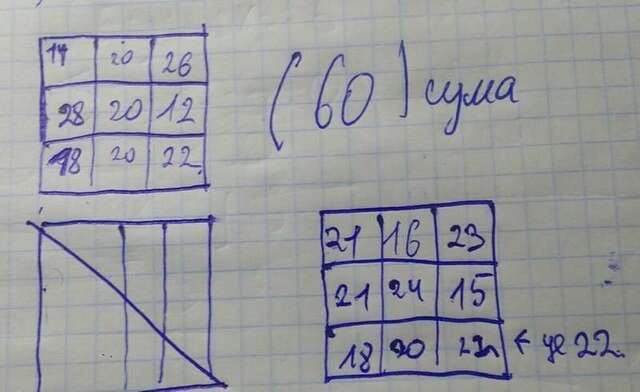 14 20 26
28 20 12
18 20 22
(60) сума
21 16 23
21 24 15
18 20 22 ← це 22.